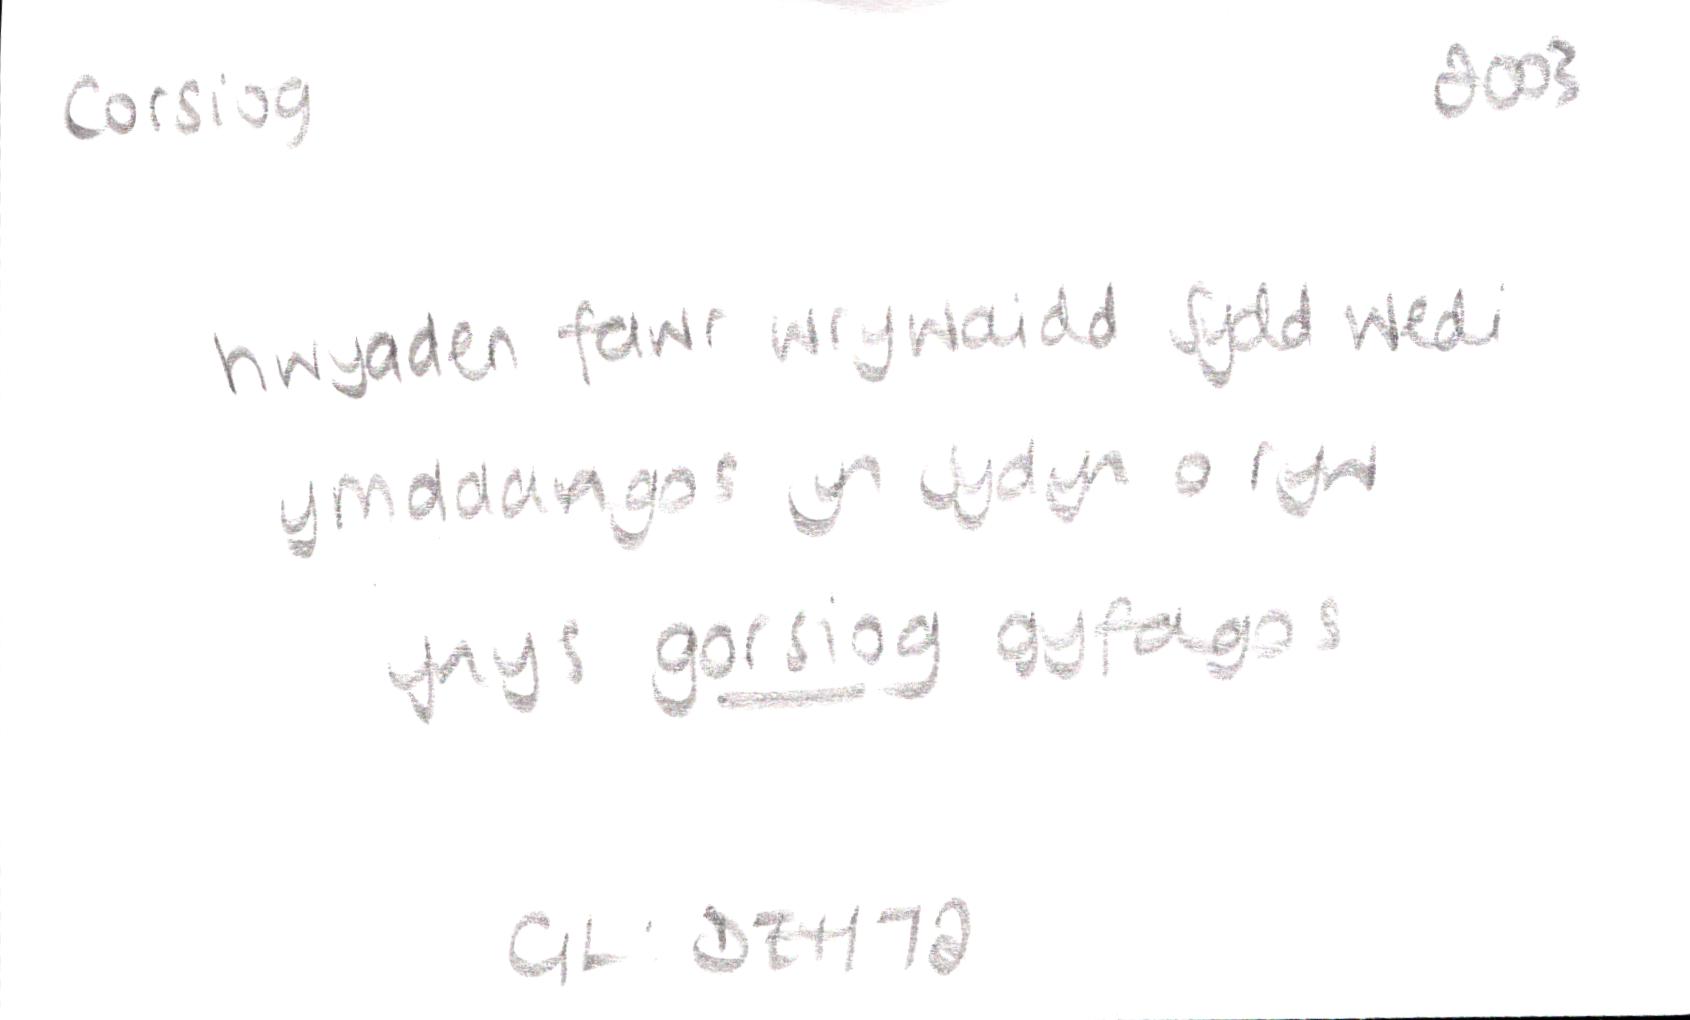 Corsiog 2003
hwyaden fawr wrywaidd sydd wedi
ymddangos yn sydyn o ryw
ynys gorsiog gyfagos
GL: DZH 72